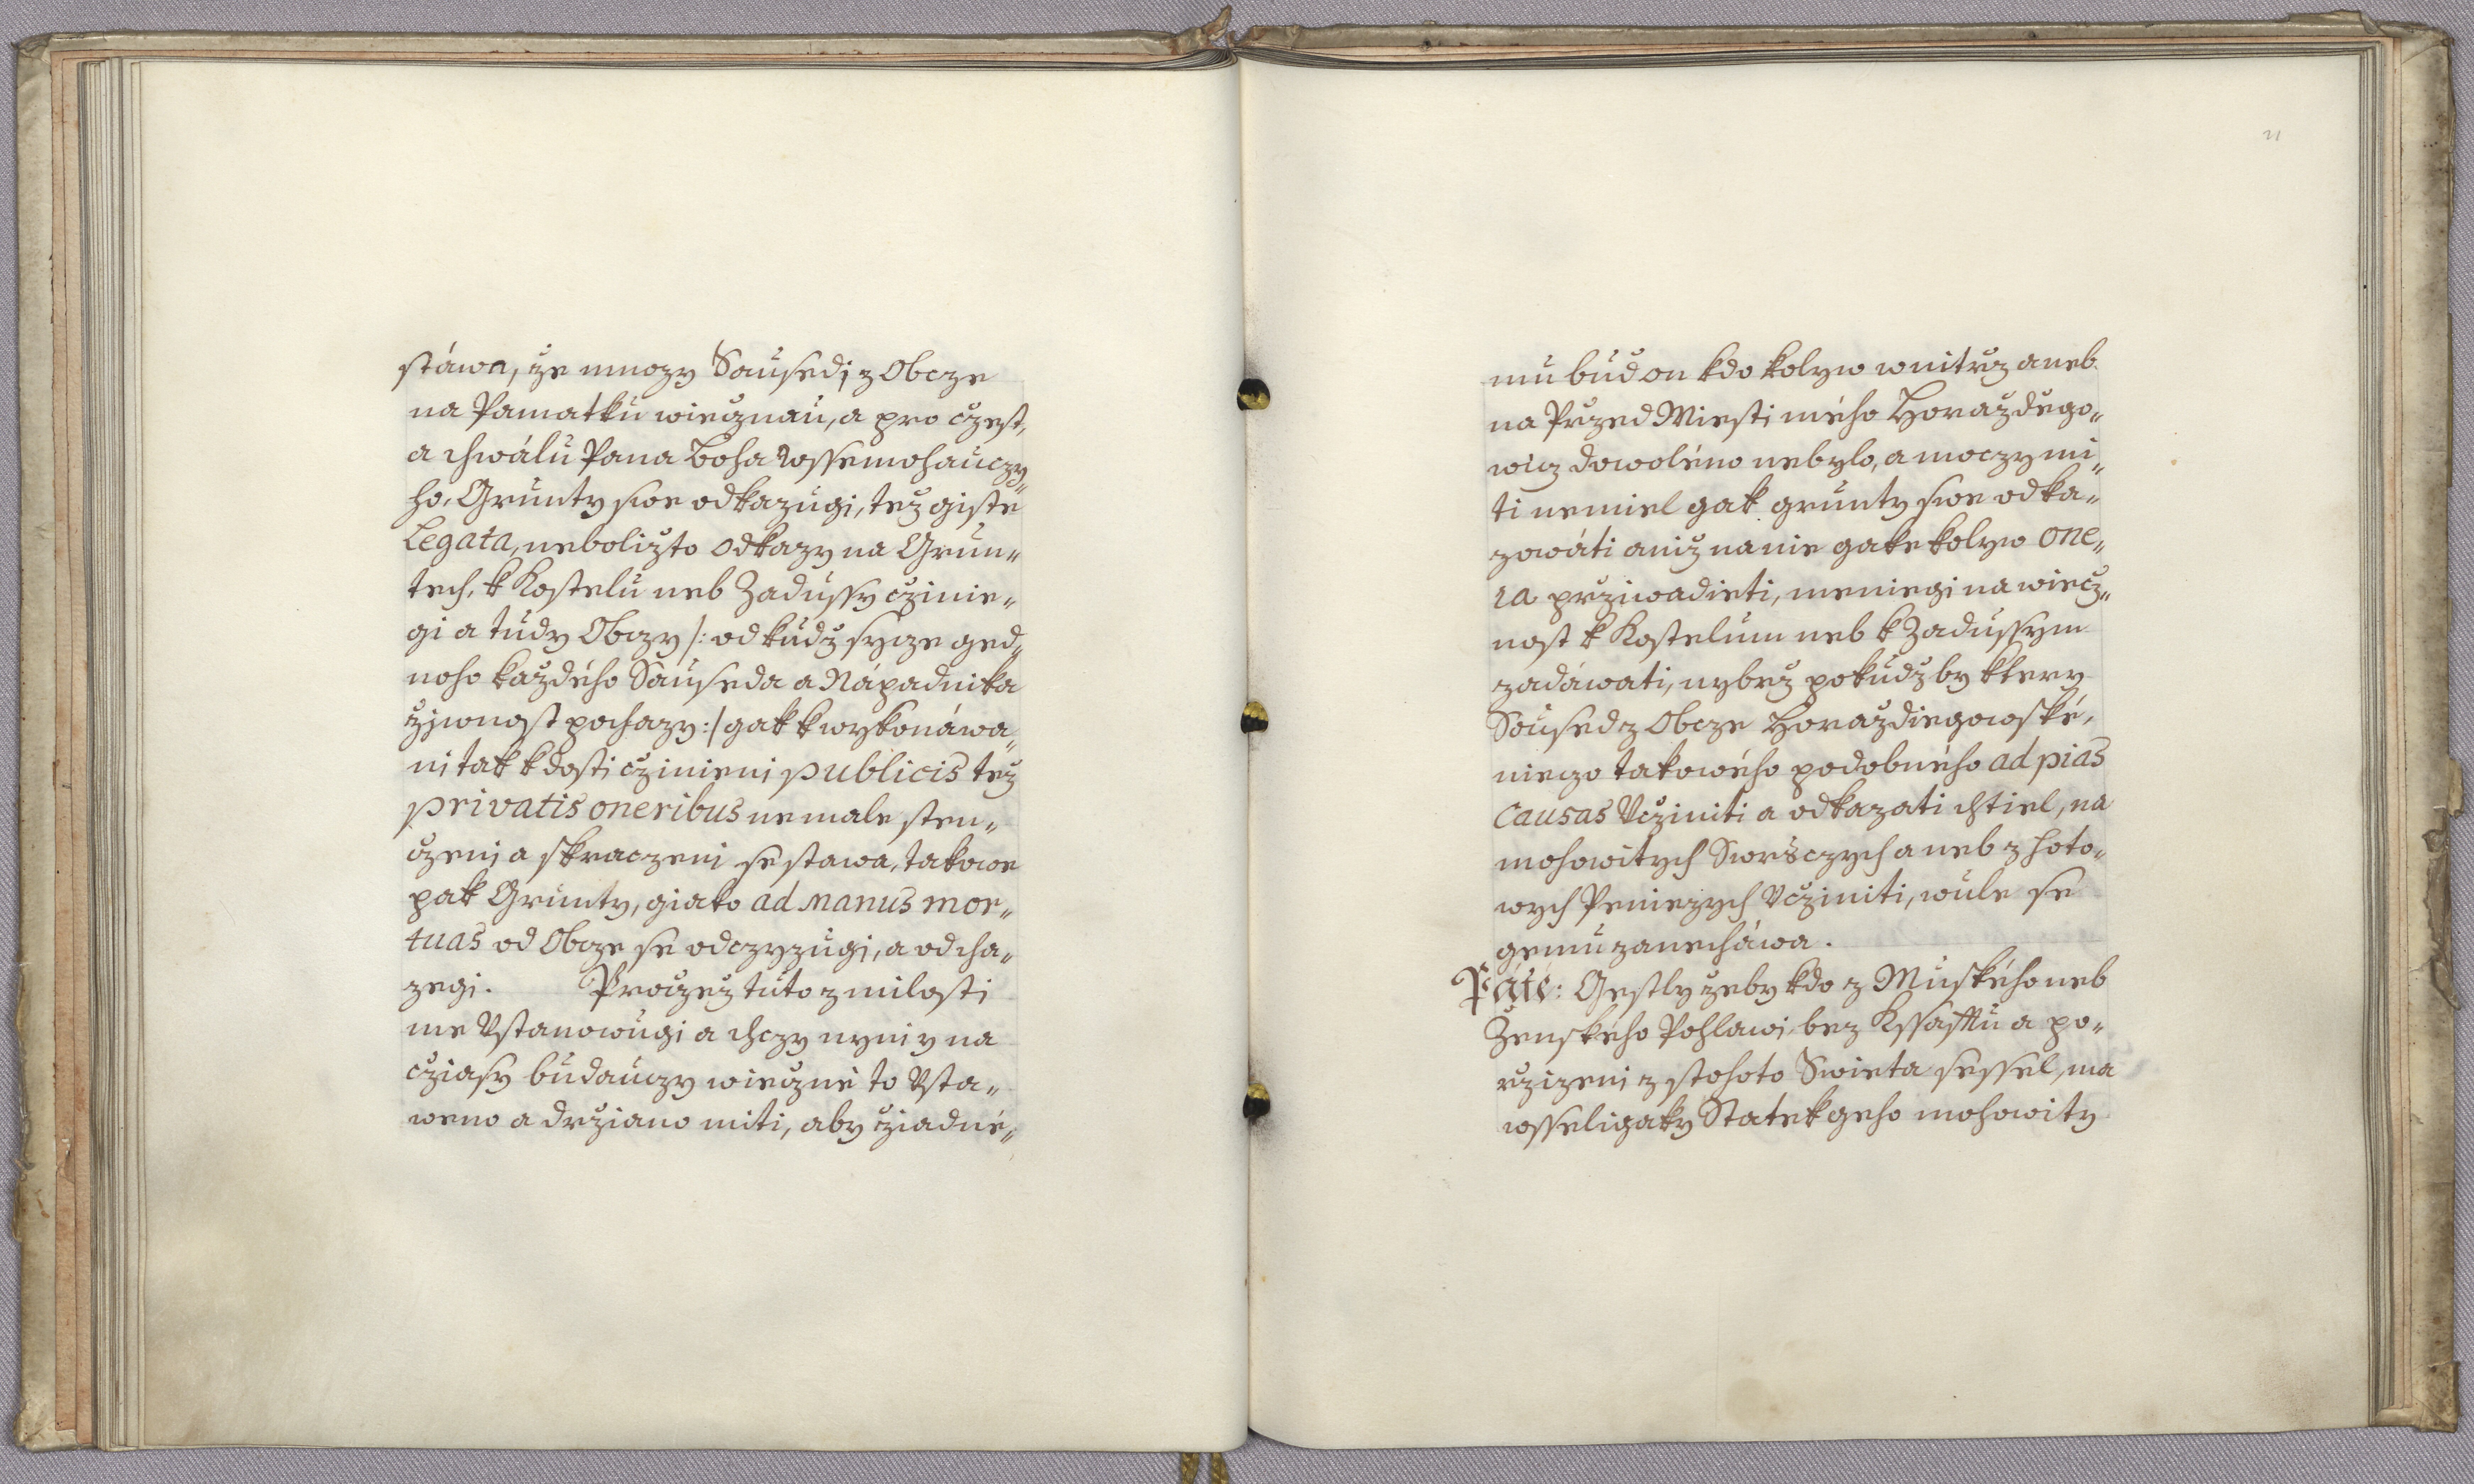 stáwa, že mnozy Sausedj z Obcze
na Pamatku wiecznau, a pro czest,
a chwálu Pana Boha Wssemohauczy„
ho, Grunty swe odkazugi, tež giste
Legata, neboližto odkazy na Grun„
tech, k Kostelu neb Zadussy czinie„
gi a tudy Obczy /: odkudž sycze ged„
noho každého Sauseda a Nápadnika
žiwnost pochazy :/ gak k wykonáwa„
ni tak k dosti czinieni publicis tež
privatis oneribus nemale sten„
czeni a skraczeni se stawa, takowe
pak Grunty, giako ad manus mor„
tuas od Obcze se odczyzugj, a odcha„
zegi. Proczež tuto z milosti
me Ustanowugi a chczy nyni y na
cziasy budauczy wiecznė to Usta„
weno a držiano miti, aby žiadné„
21
mu bud on kdo kolyw wnitrž aneb
na Przed Miesti mého Horaždego„
wicz dowoléno nebylo, a moczy mi„
ti nemiel gak grunty swe odka„
zowáti aniž na nie gake kolyw one„
ra prziwadieti, meniegi na wiecž„
nost k Kostelum neb k Zadussym
zadáwati, nybrž pokudž by ktery
Soused z Obcze Horaždiegowské,
nieczo takowého podobného ad pias
causas Ucziniti a odkazati chtiel, na
mohowitych Swrsczych aneb z hoto„
wych Peniezych Ucziniti, wule se
gemu zanecháwa.
Páté: Gestly žeby kdo z Mužského neb
Ženského Pohlawi bez Kssafftu a po„
rzizeni z stohoto Swieta sessel, ma
wsseligaky Statek geho mohowity